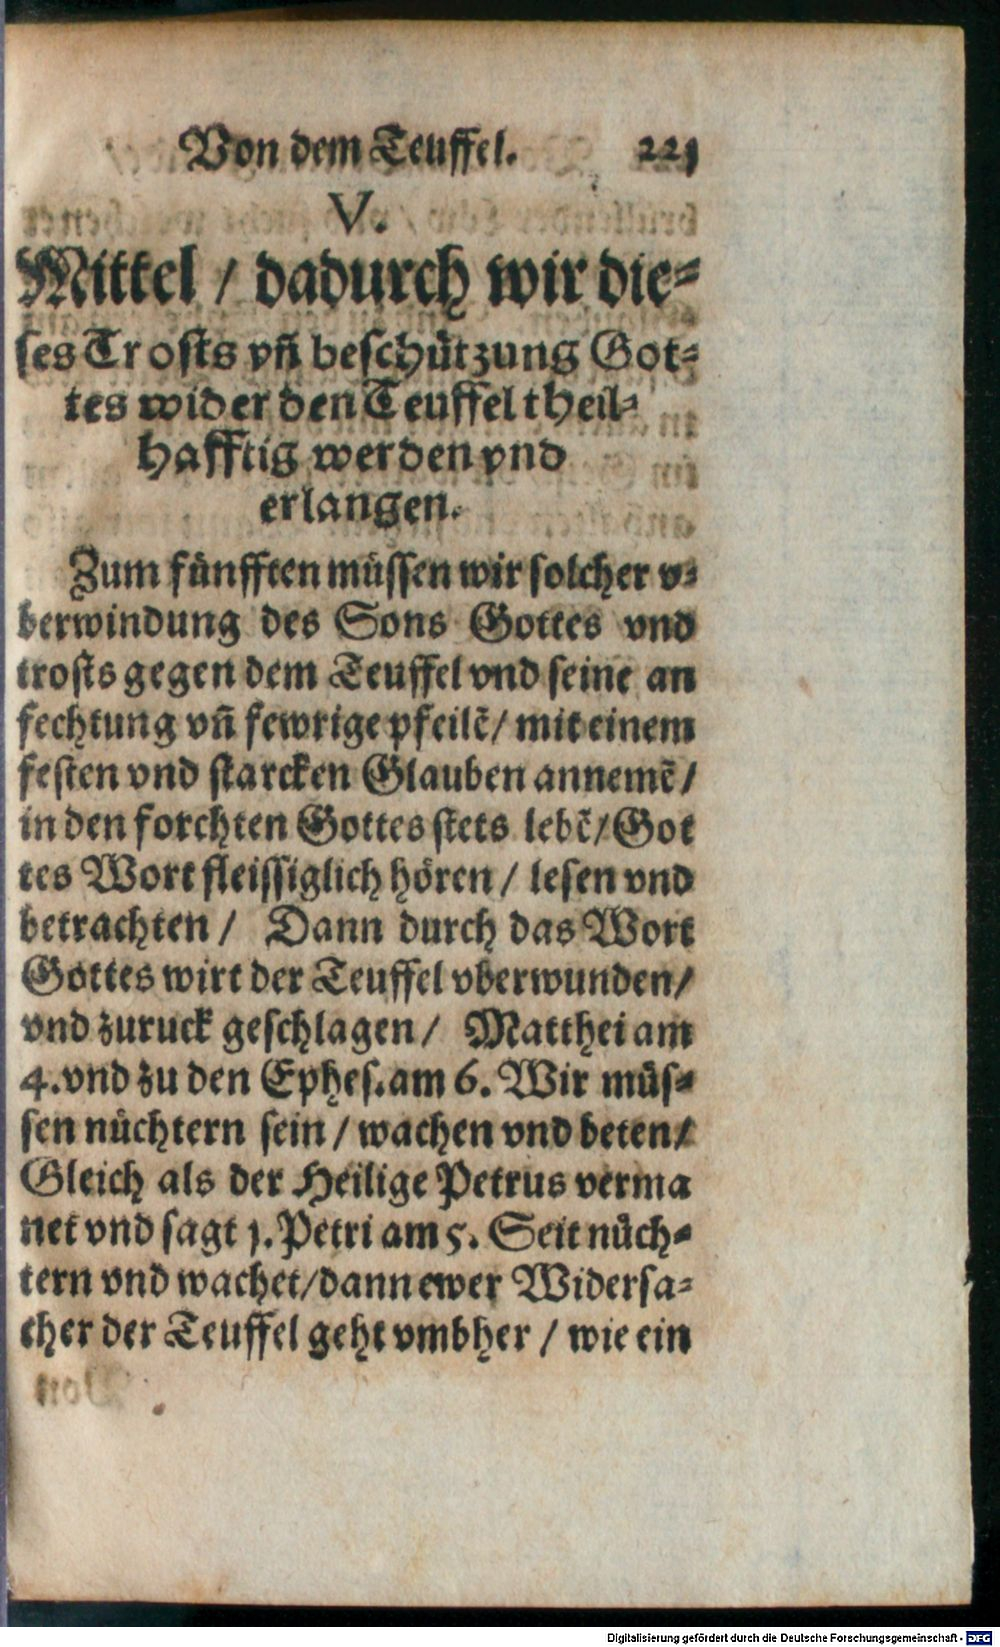 Von dem Teuffel. 221
V.
Mittel / dadurch wir die⸗
ses Trosts vñ beschützung Got⸗
tes wider den Teuffel theil⸗
hafftig werden vnd
erlangen.
Zum fünfften müssen wir solcher v⸗
berwindung des Sons Gottes vnd
trosts gegen dem Teuffel vnd seine an
fechtung vñ fewrige pfeilẽ / mit einem
festen vnd starcken Glauben annemẽ /
in den forchten Gottes stets lebẽ / Got
tes Wort fleissiglich hören / lesen vnd
betrachten / Dann durch das Wort
Gottes wirt der Teuffel vberwunden /
vnd zuruck geschlagen / Matthei am
4. vnd zu den Ephes. am 6. Wir müs⸗
sen nüchtern sein / wachen vnd beten /
Gleich als der Heilige Petrus verma
net vnd sagt 1. Petri am 5. Seit nüch⸗
tern vnd wachet / dann ewer Widersa⸗
cher der Teuffel geht vmbher / wie ein
Digitalisierung gefördert durch die Deutsche Forschungsgemeinschaft - DFG